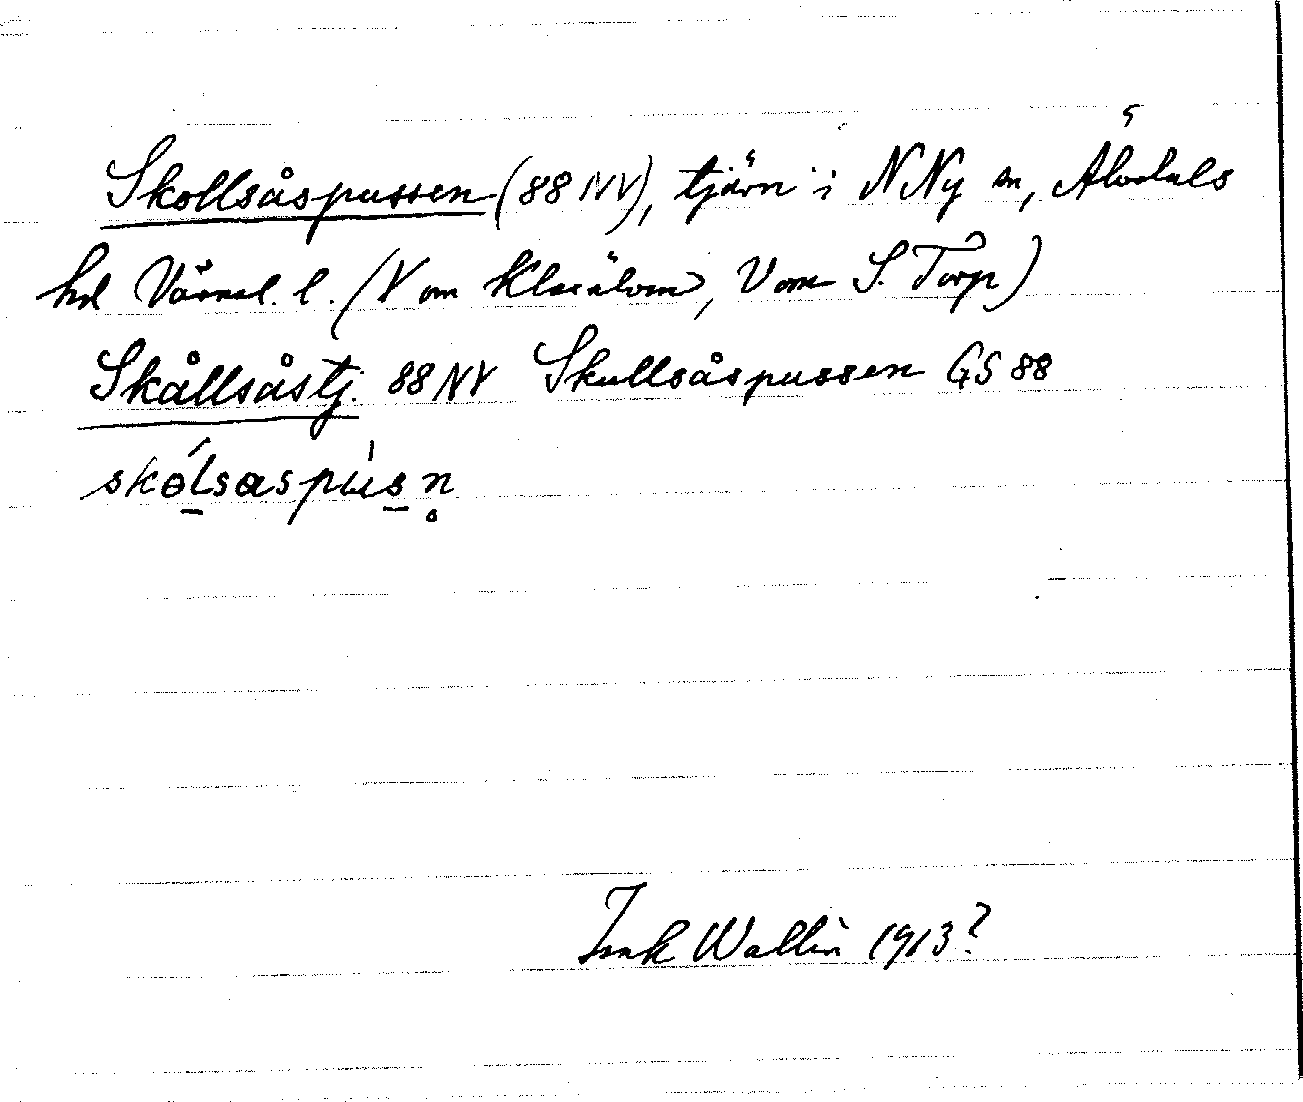 Skollsåspussen (88 NV), tjärn i N Ny sn, Älvdals
hd Värml. l. (V om Klarälven, V om S. Torp)
Skållsåstj. 88 NV Skullsåspussen GS 88
skólsaspùsn̥
Isak Wallin 1913?